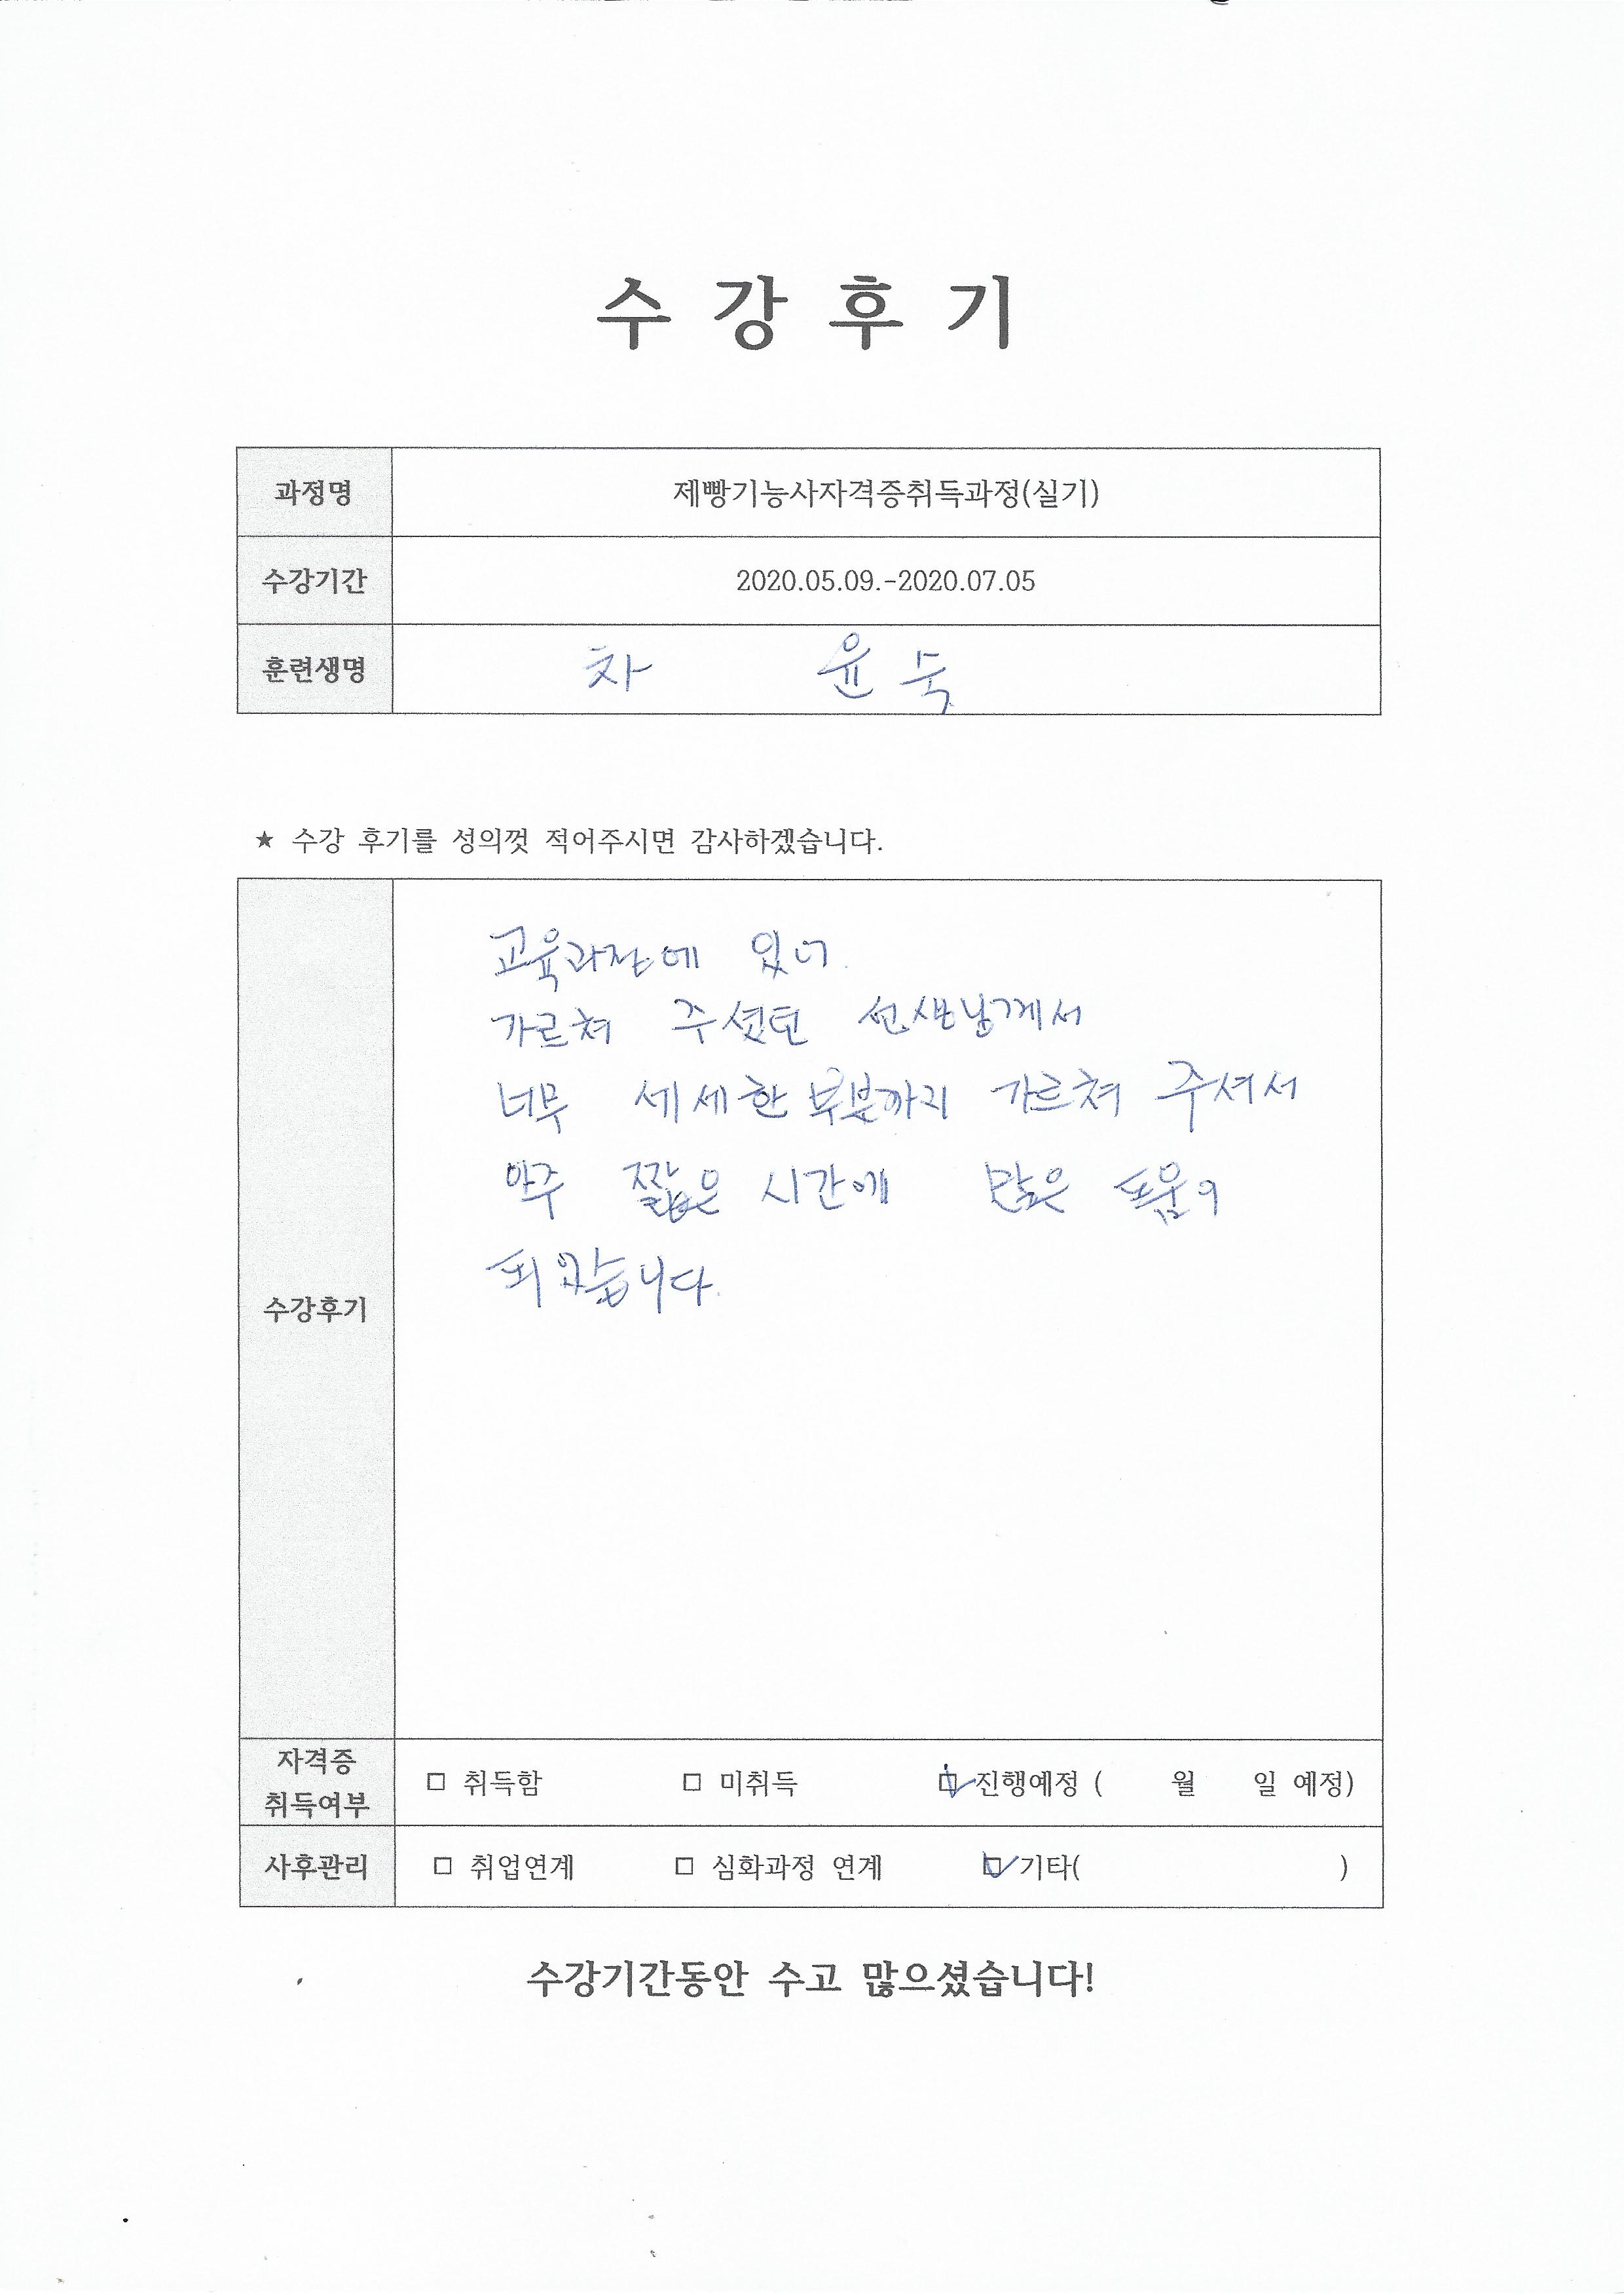 수 강 후 기
과정명 제빵기능사자격증취득과정(실기)
수강기간 2020.05.09.-2020.07.05
훈련생명 차 윤숙
★ 수강 후기를 성의껏 적어주시면 감사하겠습니다.
교육과정에 있어
가르쳐 주셨던 선생님께서
너무 세세한 부분까지 가르쳐 주셔서
아주 짧은 시간에 많은 도움이
되었습니다.
수강후기
자격증
취득여부 □ 취득함 □ 미취득 ☑ 진행예정 ( 월 일 예정)
사후관리 □ 취업연계 □ 심화과정 연계 ☑ 기타( )
수강기간동안 수고 많으셨습니다!